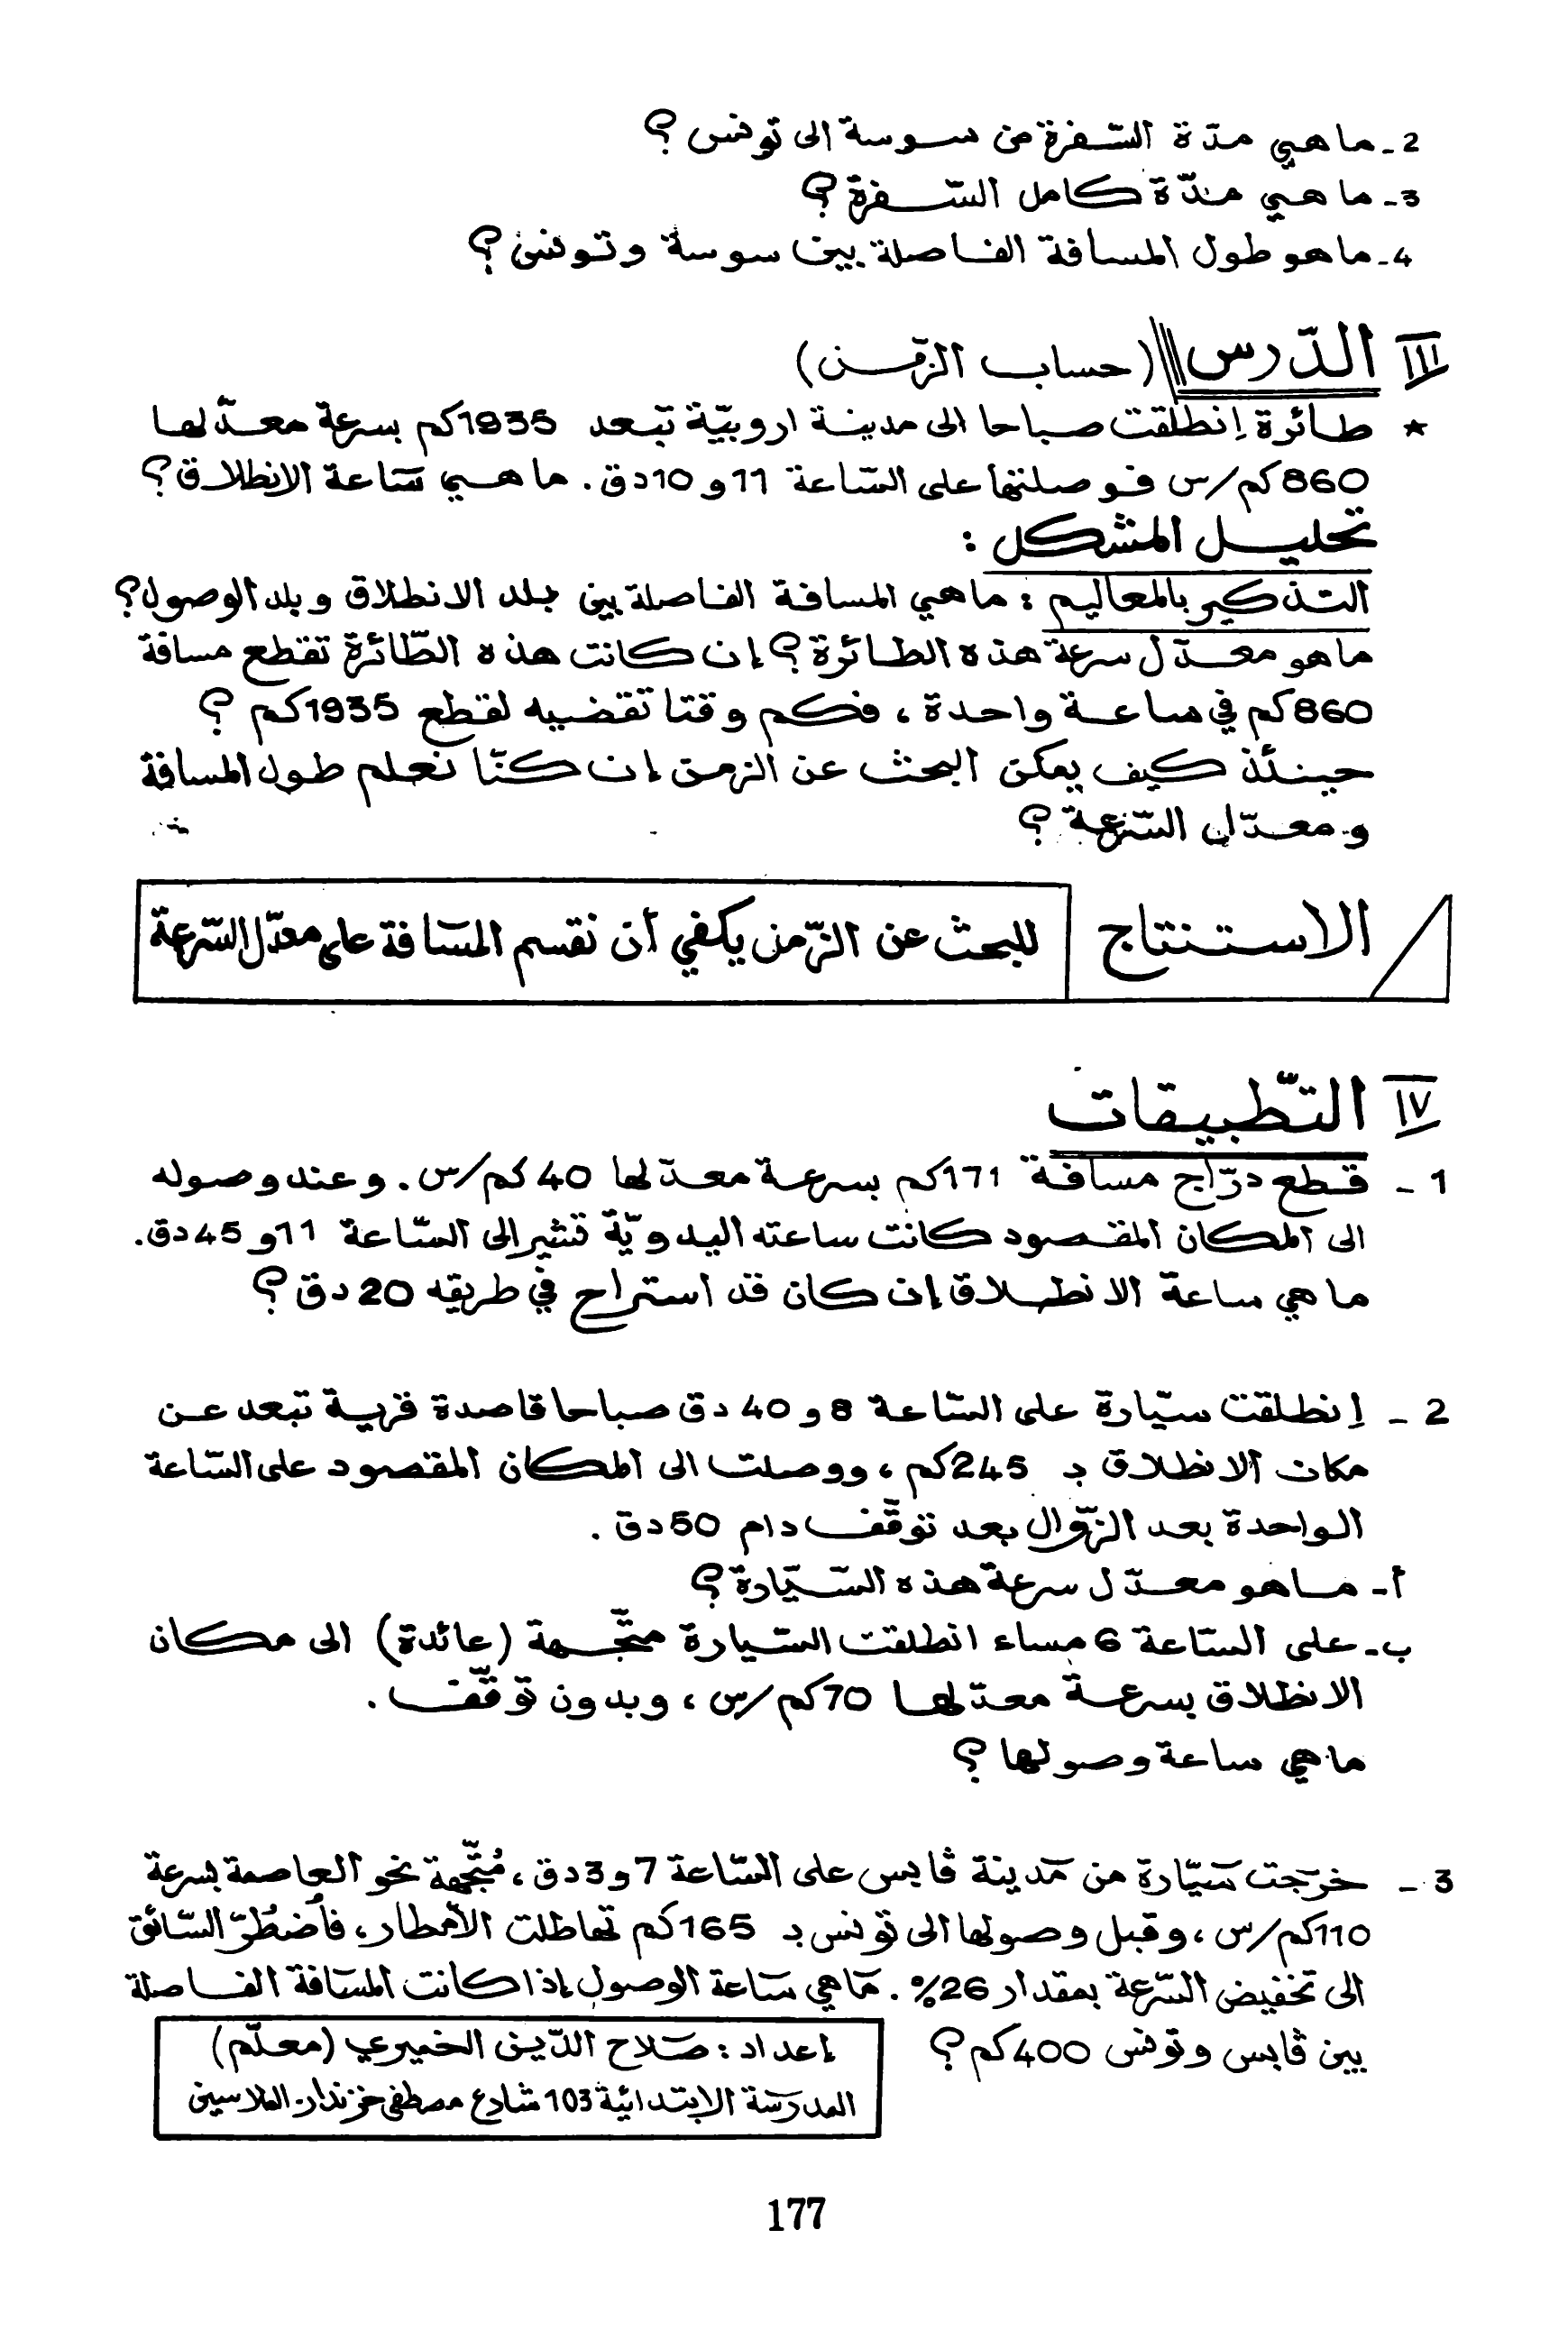 2- ما هي مدّة السّفرة من سوسة الى تونس ؟
3- ما هي مدّة كامل السّفرة ؟
4- ما هو طول المسافة الفاصلة بين سوسة وتونس ؟
III الدّرس (حساب الزّمن)
* طائرة إنطلقت صباحا الى مدينة اروبيّة تبعد 1935كم بسرعة معدّلها
860كم/س فوصلتها على السّاعة 11 و10دق. ما هي ساعة الانطلاق ؟
تحليل المشكل :
التذكير بالمعاليم : ماهي المسافة الفاصلة بين بلد الانطلاق وبلد الوصول؟
ما هو معدّل سرعة هذه الطائرة ؟ إن كانت هذه الطّائرة تقطع مسافة
860كم في ساعة واحدة ، فكم وقتا تقضيه لقطع 1935كم ؟
حينئذ كيف يمكن البحث عن الزمن إن كنّا نعلم طول المسافة
و معدّل السّرعة ؟
الاستنتاج
للبحث عن الزّمن يكفي أن نقسم المسافة على معدّل السّرعة
IV التّطبيقات
1 - قطع درّاج مسافة 171كم بسرعة معدّلها 40 كم/س. وعند وصوله
الى المكان المقصود كانت ساعته اليدويّة تشير الى السّاعة 11 و45دق.
ما هي ساعة الانطلاق إن كان قد استراح في طريقه 20 دق ؟
2 - إنطلقت سيّارة على السّاعة 8 و 40 دق صباحا قاصدة قرية تبعد عن
مكان الانطلاق بـ 245كم ، ووصلت الى المكان المقصود على السّاعة
الواحدة بعد الزّوال بعد توقّف دام 50دق .
أ- ما هو معدّل سرعة هذه السّيّارة ؟
ب- على السّاعة 6 مساء انطلقت السّيارة متّجهة (عائدة) الى مكان
الانطلاق بسرعة معدّلها 70كم/س ، وبدون توقّف .
ما هي ساعة وصولها ؟
3 - خرجت سيّارة من مدينة ڨابس على السّاعة 7 و3دق ، مُتّجهة نحو العاصمة بسرعة
110كم/س ، وقبل وصولها الى تونس بـ 165كم تهاطلت الأمطار، فاُضطُرّ السّائق
الى تخفيض السّرعة بمقدار 26%. ما هي ساعة الوصول إذا كانت المسافة الفاصلة
بين ڨابس وتونس 400كم ؟
إعداد : صلاح الدّين الخميري (معلّم)
المدرسة الابتدائية 103 شارع مصطفى خزندار- الملاسين
177